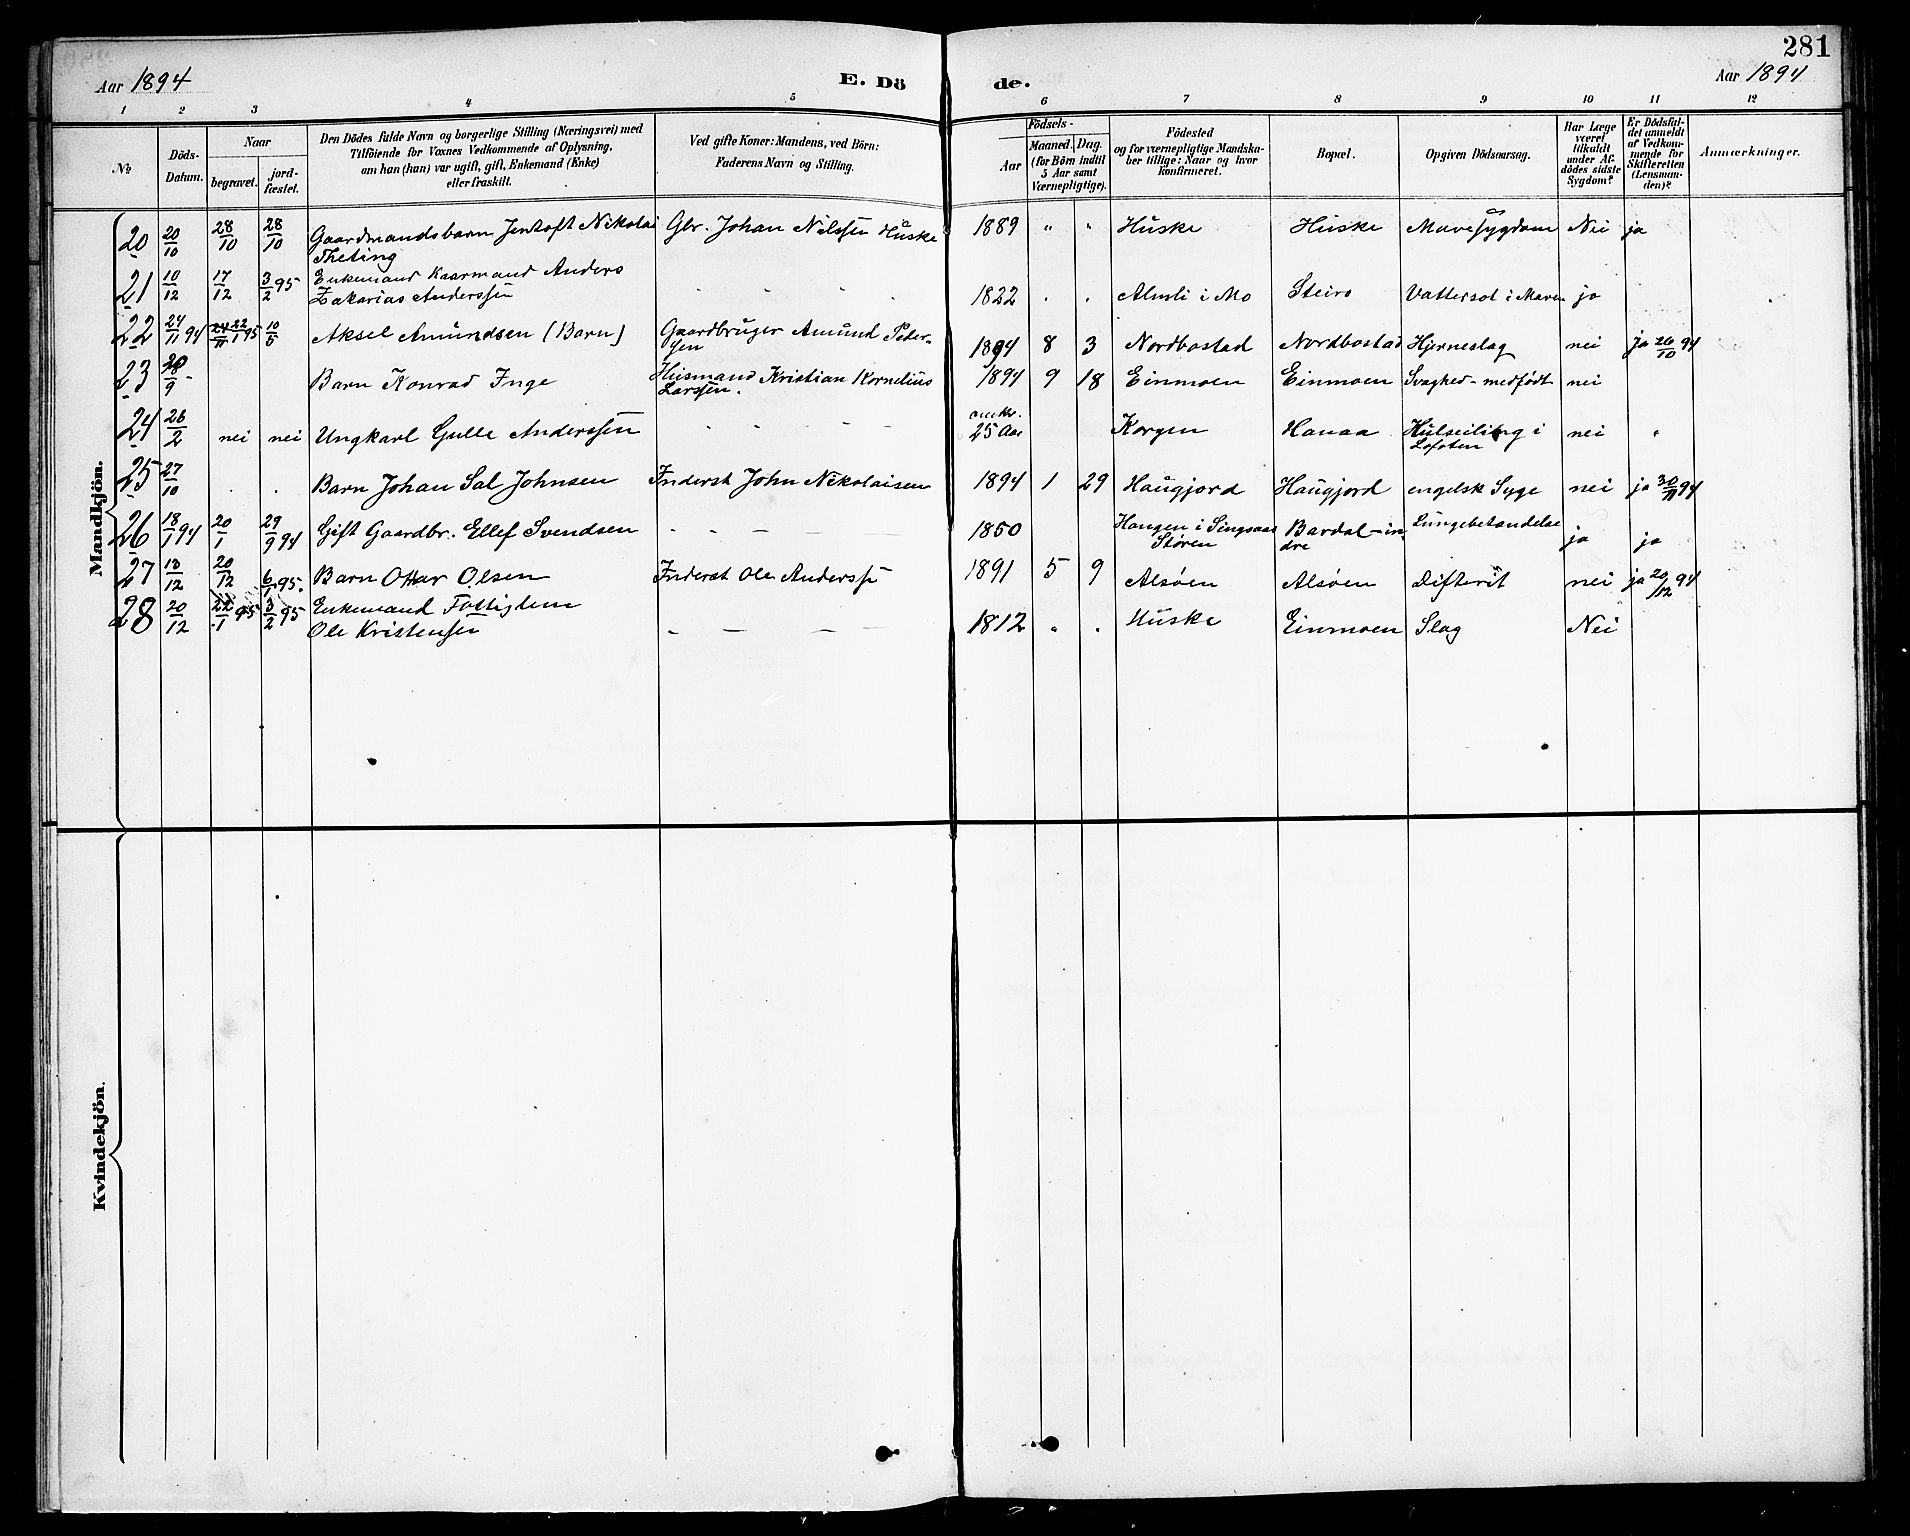 281
Aar 1894 E. Dö de. Aar 1894
1 2 3 4 5 6 7 8 9 10 11 12
№
Döds-Datum.
Naar
begravet.
jordfæstet.
Den Dödes fulde Navn og borgerlige Stilling (Næringsvei) med
Tilföiende for Voxnes Vedkommende af Oplysning,
om han (hun) var ugift, gift, Enkemand (Enke)
eller fraskilt.
Ved gifte Koner: Mandens, ved Börn:
Faderens Navn og Stilling.
Födsels-
Aar
Maaned. Dag.
(for Börn indtil
5 Aar samt
Værnepligtige).
Födested
og for værnepligtige Mandska-
ber tillige: Naar og hvor
konfirmeret.
Bopæl.
Opgiven Dödsaarsag.
Har Læge
været
tilkaldt
under Af-
dödes sidste
Sygdom?
Er Dödsfal-
det anmeldt
af Vedkom-
mende for
Skifteretten
(Lensman-
den)?
Anmærkninger.
Mandkjön.
20 20/10 28/10 28/10 Gaardmandsbarn Jentoft Nikolai Gbr. Johan Nilssen Huske 1889 " " Huske Huske Mavesygdom Nei ja
Theting
21 10/12 17/12 3/2 95 Enkemand Kaarmand Anders
Zakarias Anderssen 1822 Almli i Mo Steiro Vattersot i Maven ja
22 24/11 94 22/1 95 10/5 Aksel Amundsen (Barn) Gaardbruger Amund Peder-
sen 1894 8 3 Nordbostad Nordbostad Hjerneslag nei ja 26/10 94
23 28/9 Barn Konrad Inge Husmand Kristian Kornelius
Larssen. 1894 9 18 Einmoen Einmoen Svaghed - medfödt nei
24 26/2 nei nei Ungkarl Gulle Anderssen omtr.
25 Aar Korgen Hanaa Kulseiling i
Lofoten nei "
25 27/10 Barn Johan Sal Johnsen Inderst John Nikolaisen 1894 1 29 Haugjord Haugjord engelsk Syge nei ja 30/11 94
26 18/1 94 20/1 29/9 94 Gift Gaardbr. Ellef Svendsen 1850 Haugen i Singsaas
Støren Bardal - in
dre Lungebetændelse ja ja
27 13/12 20/12 6/1 95. Barn Ottar Olsen Inderst Ole Anderss 1891 5 9 Alsøen Alsøen Difterit nei ja 20/12 94
28 20/12 22/1 95 3/2 95 Enkemand Fattiglem
Ole Kristensen 1812 " " Huske Einmoen Slag Nei
Kvindekjön.